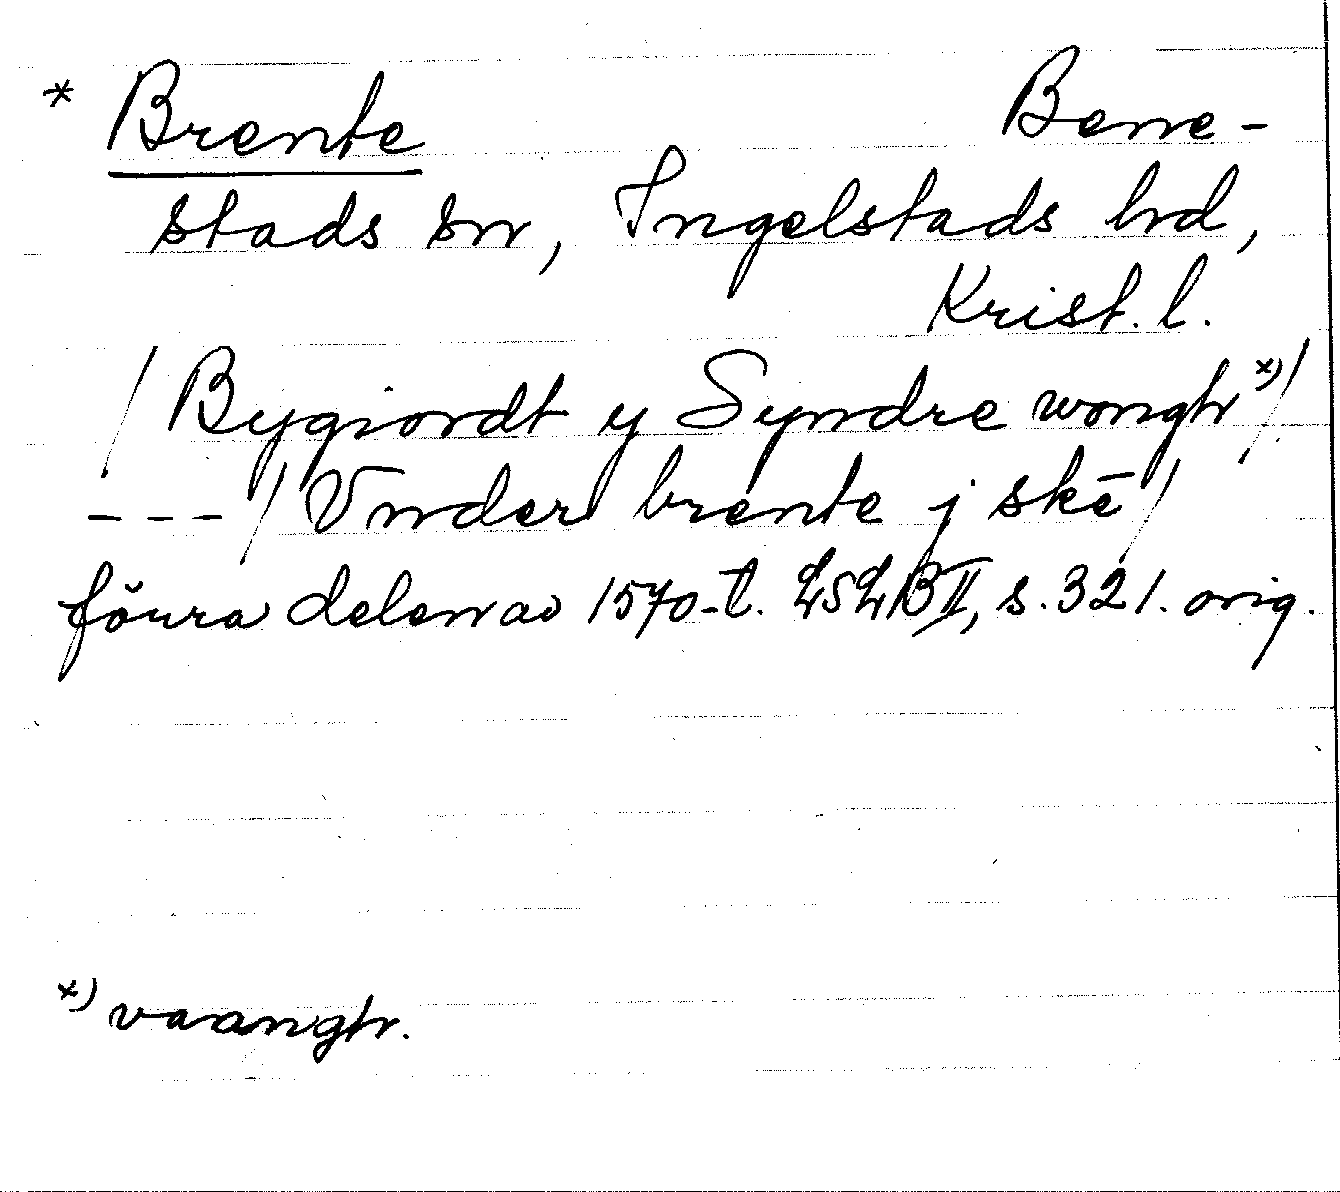 * Brente Benne-
stads sn, Ingelstads hd,
Krist. l.
/ Bygiordt y Syndre wongh x) /
--- / Vnder brente j skē /
förra delen av 1570-t. LSLB II, s. 321. orig.
x) vaangh.